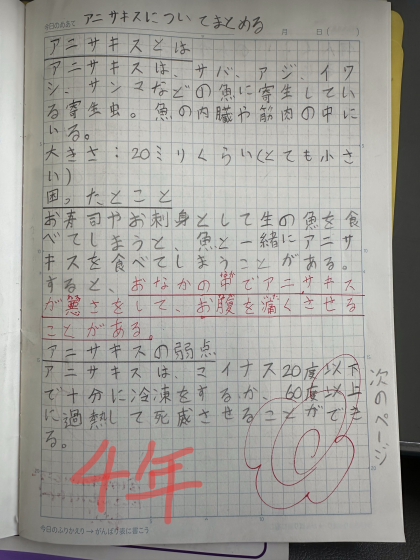 今日のめあて アニサキスについてまとめる
月 日( )
アニサキスとは
アニサキスは、サバ、アジ、イワ
シ、サンマなどの魚に寄生してい
る寄生虫。魚の内臓や筋肉の中に
いる。
大きさ：20ミリくらい(とても小さ
い)
困ったとこと
お寿司やお刺身として生の魚を食
べてしまうと、魚と一緒にアニサ
キスを食べてしまうことがある。
すると、おなかの中でアニサキス
が悪さをして、お腹を痛くさせる
ことがある。
アニサキスの弱点
アニサキスは、マイナス20度以下
で十分に冷凍をするか、60度以上
に過熱して死滅させることができ
る。
次のページ
4年
今日のふりかえり→がんばり表に書こう